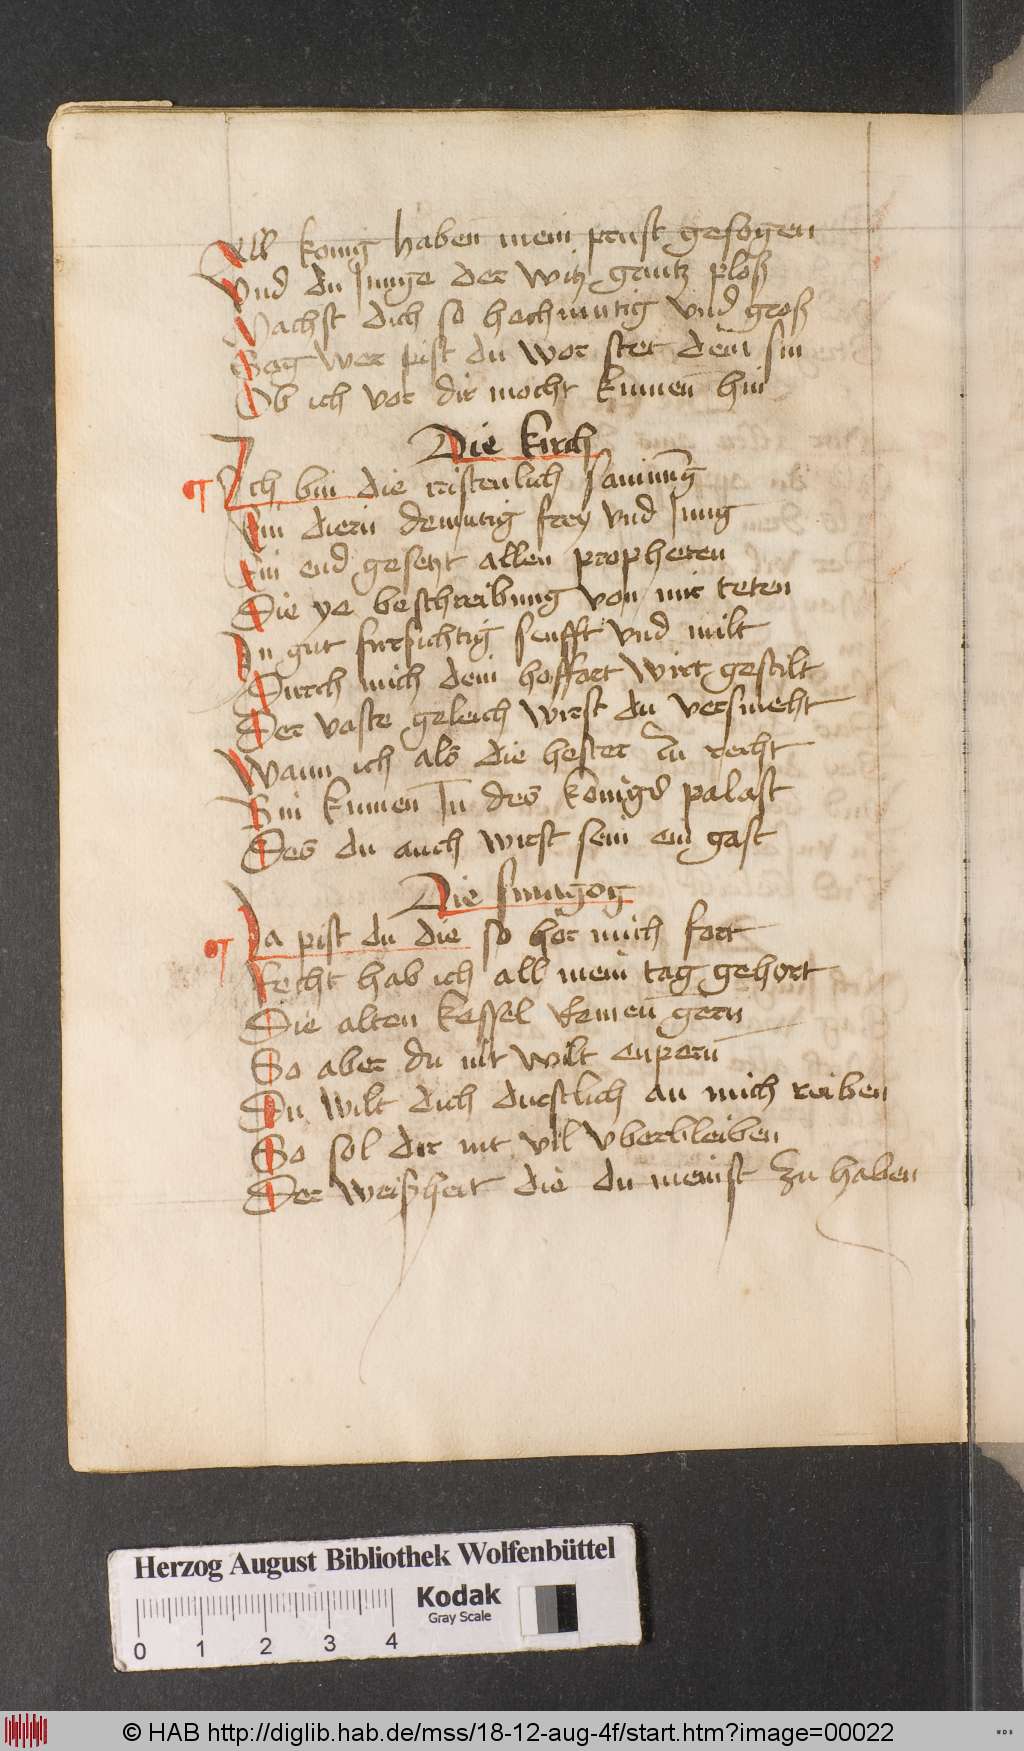 All konig haben mein prust gesogen
Vnd du Junge der witz gantz ploß
Machst dich so hochmutig vnd groß
Sag wer pist du wor stet dein sin
Ob ich vor dir mocht kumen hin
Die kirch
Ich bin die cristenlich samung
Ein diern demutig frey vnd Jung
Ein end gesetzt allen propheten
Die ye beschreibung von mir teten
In gut fursichtig senfft vnd milt
Durch mich dein hoffart wirt gestilt
Der vaste geleich wirst du versmeht
Wann ich als die hester zu recht
Bin kumen In des konigs palast
Des du auch wirst sein ein gast
Die sinagog
Ja pist du die so hor mich fort
Recht hab ich all mein tag gehort
Die alten kessel remen gern
So aber du nit wilt enpern
Du wilt dich durstlich an mich reiben
So sol dir nit vil vberbleiben
Der weißheit die du meinst zu haben
Herzog August Bibliothek Wolfenbüttel
Kodak
Gray Scale
0 1 2 3 4
© HAB http://diglib.hab.de/mss/18-12-aug-4f/start.htm?image=00022